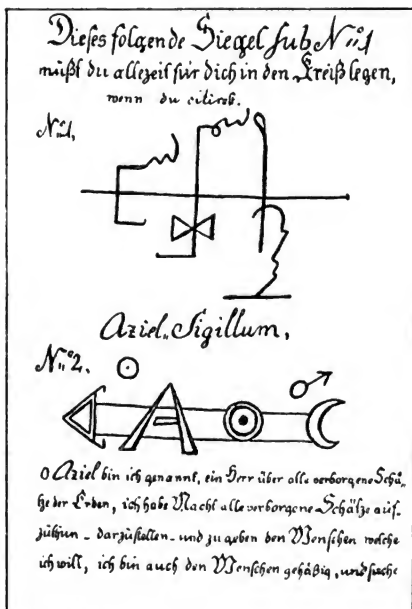 Dieses folgende Siegel sub N: 1
müßt du allezeit für dich in den Kreiß legen,
wenn du citirest.
N: 1,
Aziel Sigillum,
N: 2.
O Aziel bin ich genannt, ein Herr über alle verborgene Schä-
tze der Erden, ich habe Macht alle verborgene Schätze auf-
zuthun - darzustellen - und zu geben den Menschen welche
ich will, ich bin auch den Menschen gehäßig, und